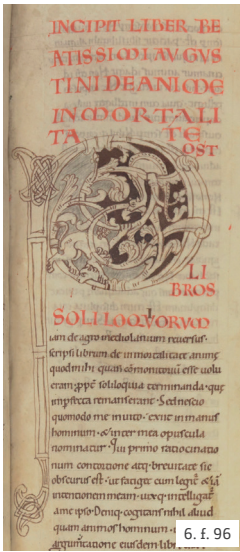 INCIPIT LIBER BE
ATISSIMI AVGVS
TINI DE ANIME
INMORTALI
TATE
POST
LI
BROS
SOLILOQVIORVM
iam de agro mediolanium reuersus.
scripsi librum de inmortalitate anime
quod mihi quasi cōmonitoriū esse uolu
eram; ꝓpt̄ soliloquia terminanda. que
imperfecta remanserant. Sed nescio
quomodo me inuito. exiit in manus
hominum. & inter mea opuscula
nominatur. Qui primo ratiocinatio
num contortione atq; breuitate sic
obscurus est. ut fatiget cum legit̄ & iā
intentionem meam. uixq; intelligat̄
a me ipso. Deniq; cogitans nihil aliud
quam animos hominum
argumtatione eiusdem lib
6. f. 96